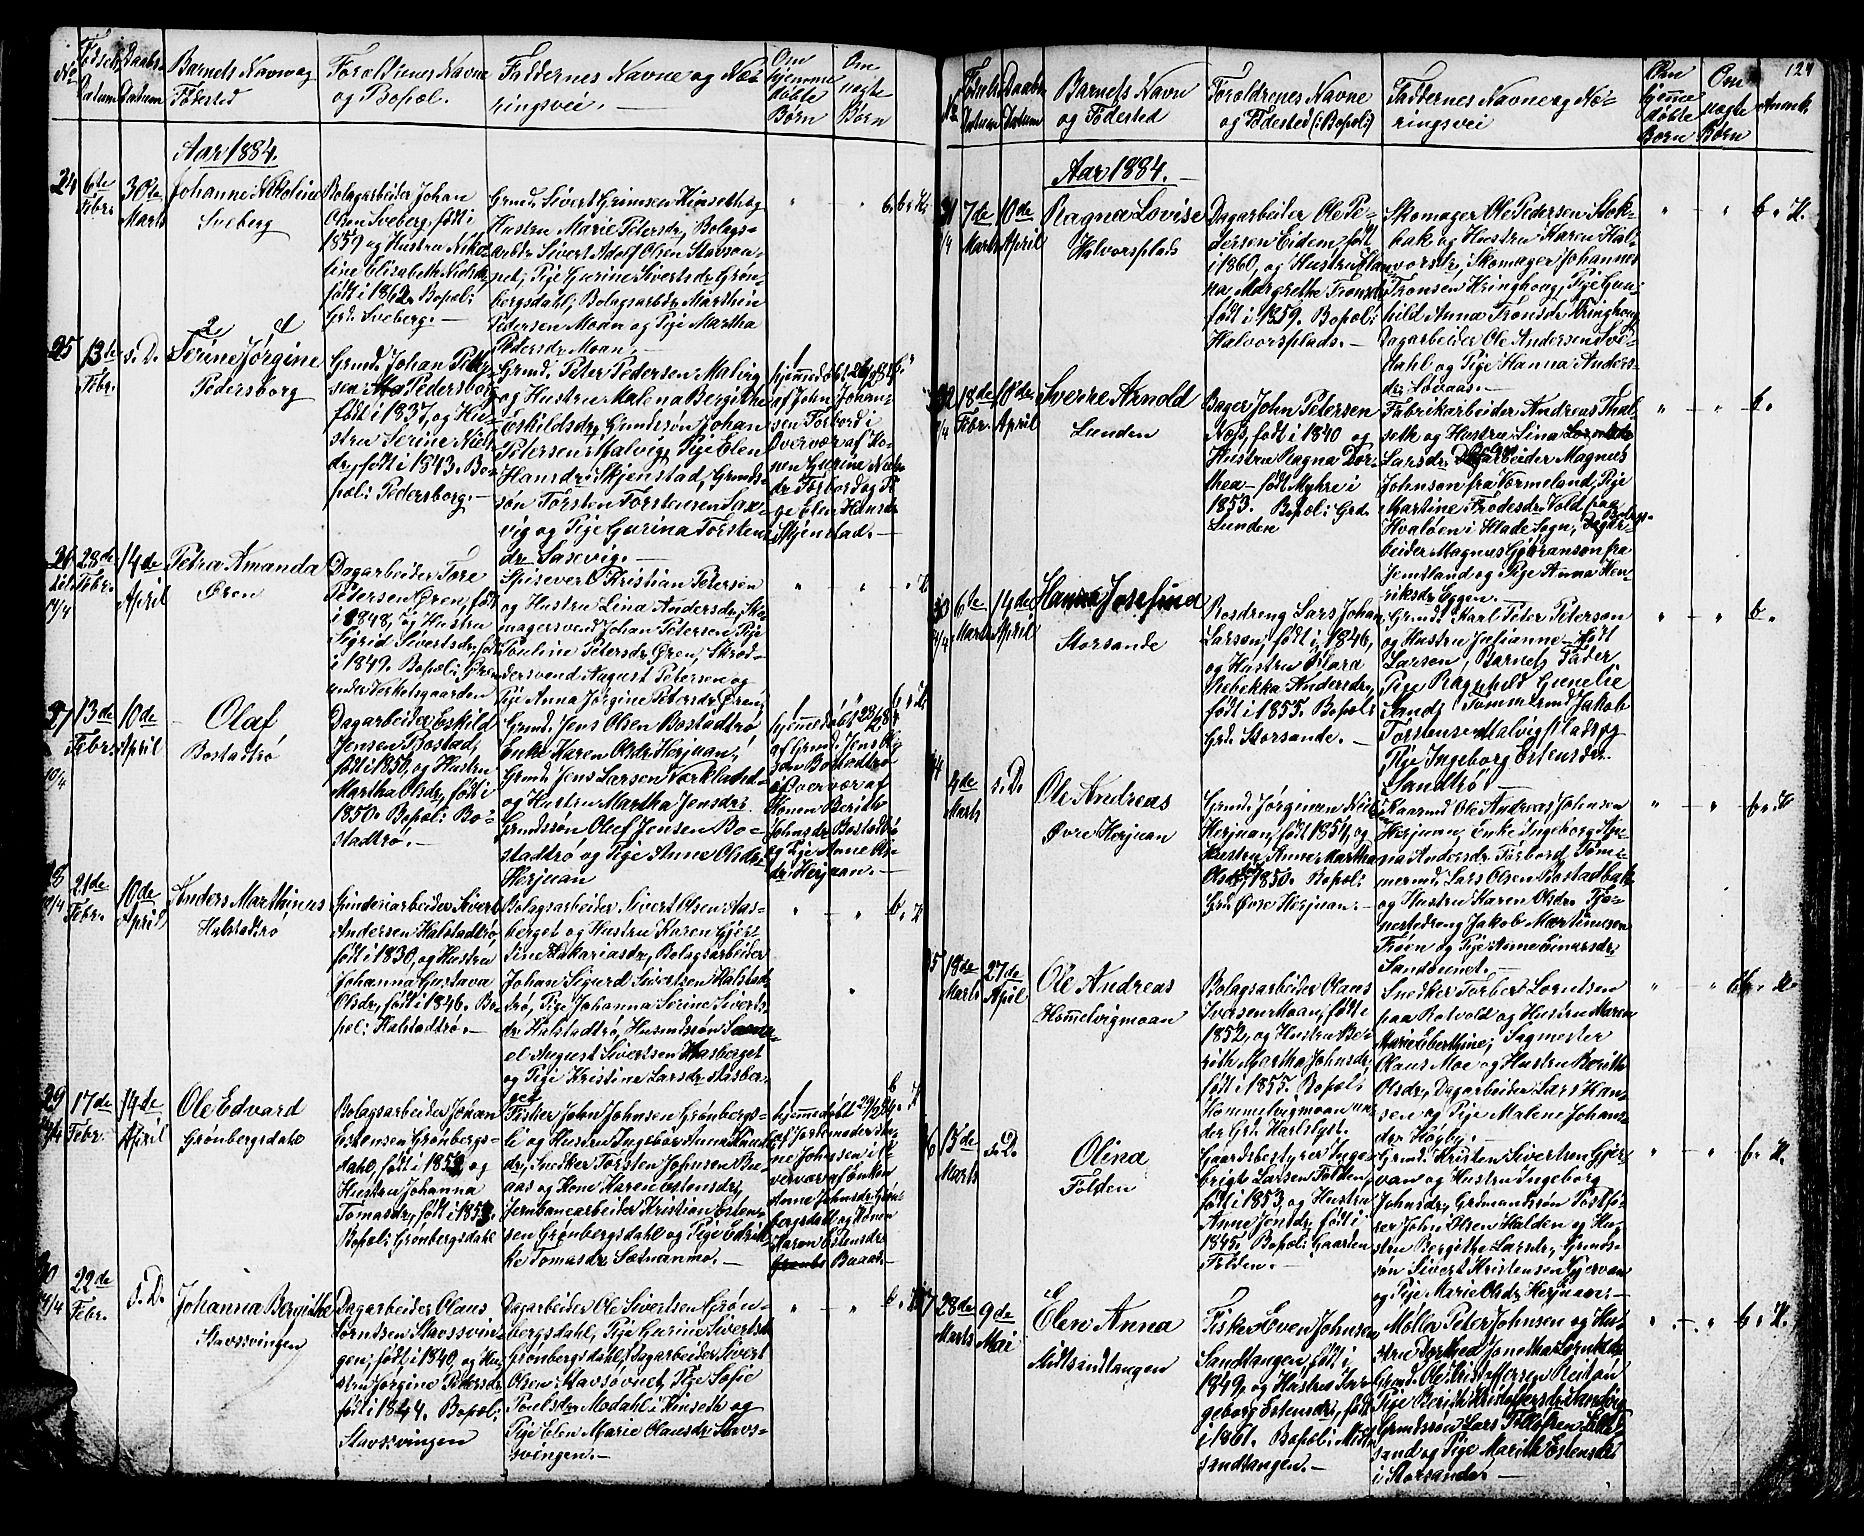 No
Fødsels Datum
Daabs Datum
Barnets Navn og
Fødested
Forældrenes Navne
og Bopæl.
Faddernes Navne og Næ-
ringsvei. —
Om
hjemme
døbte
Børn
Om
uægte
Børn
Aar 1884.
24
6te
Febr.
30te
Marts
Johanne Nikoline
Sveberg
Bolagarbeider Johan
Olsen Sveberg, født i
1859 og Hustru Nika-
line Elisabeth Nielsdr,
født i 1862. Bopæl:
Grd. Sveberg. —
Grmd. Sivert Grimsen Hinseth og
Hustru Marie Petersdr, Bolags-
arbdr Sivert Adolf Olsen Stavsøv-
net, Pige Gurine Sivertsdr Grøn-
bergsdahl, Bolagsarbdr Marthin
Pedersen Moan og Pige Martha
Pedersdr Moan. —
25
13de
Febr.
s. D.
Serine Jørgine
Pedersborg
Grmd. Johan Peter-
sen Pedersborg
født i 1837, og Hu-
stru Serine Niels-
dr, født i 1843. Bo-
pæl: Pedersborg. —
Grmd. Peter Pedersen Malvig
og Hustru Malena Bergithe
Eskildsdr, Grmdssøn Johan
Petersen Malvig, Pige Elen
Hansdr Skjenstad, Grmds-
søn Torsten Torstensen Sax-
vig og Pige Gurina Torstens-
dr Saxevig. —
hjemmedøbt 26/2 84
af John Johan-
sen Torbord i
Overvær af Ko-
nen Gurine Niels-
dr Torbord og Pi-
ge Elen Hansdr
Skjenstad. —
26
14/4
28de
Febr.
14de
April
Petra Amanda
Øren
Dagarbeider Tore
Petersen Øren, født
i 1848, og Hustru
Sigrid Sivertsdr, født
i 1849. Bopæl: Øren
under Verkelsgaarden
Spisevert Kristian Petersen
og Hustru Lina Andersdr, Sko-
magersvend Johan Petersen, Pige
Pauline Petersdr Øren, Skræd-
dersvend August Petersen og
Pige Anna Jørgine Petersdr Øren,
27
10/4
13de
Febr.
10de
April
Olaf
Bostadtrø
Dagarbeider Eskild
Jensen Bostad,
født i 1850, og Hustru
Martha Olsdr, født i
1850. Bopæl: Bo-
stadtrø. —
Grmd. Jens Olsen Bostadtrø
Enke Karen Olsdr Herjuan,
Grmd. Jens Larsen
og Hustru Martha Jensdr,
Grmdssøn Oluf Jensen Bo-
stadtrø og Pige Anne Olsdr
Herjuan
hjemmedøbt 23/2 84
af Grmd. Jens Ol-
sen Bostadtrø
i Overvær af
Konen Berith
Johnsdr Bostadtrø
og Pige Anne Ols-
dr Herjuan. —
28
10/4
21de
Febr.
10de
April
Anders Marthinus
Halstadtrø
Grindeiearbeider Sivert
Andersen Halstadtrø,
født i 1830, og Hustru
Johanna Gustava
Olsdr, født i 1846. Bo-
pæl: Halstadtrø. —
Bolagsarbeider Sivert Olsen Aas-
berget og Hustru Karen Gjert
Sakariasdr, Bolagsarbeider
Johan Sigurd Sivertsen Halstad-
trø, Pige Johanna Serine Siverts-
dr Halstadtrø, Husmdssøn Samu-
el August Sivertsen Aasberget
og Pige Kristine Larsdr Aasber-
get
29
14/4
17de
Febr.
14de
April
Ole Edvard
Grønbergsdahl
Bolagsarbeider Johan
Estensen Grønbergs-
dahl, født i 1852, og
Hustru Johanna
Tomasdr, født i 1853.
Bopæl: Grønbergsdahl
Fisker John Johnsen Grønbergs-
li og Hustru Ingebor Anna
dr, Snedker Torsten Johnsen Ba-
aas og Kone Karen Estensdr,
Jernbanearbeider Kristian Esten-
sen Grønbergsdahl og Pige Edvik-
ke Tomasdr Sætnanmo. —
hjemmedøbt 29/2 84
af Jordemoder
ne Johnsen i O-
vervær af Enken
Anne Johnsdr Grøn-
bergsdahl og Konen
Karen Estensdr
Baaas. —
30
14/4
22de
Febr.
s. D.
Johanna Bergithe
Stavssvingen
Dagarbeider Olaus
Lorntsen Stavssvin-
gen, født i 1840, og Hu-
stru Jørgine Petersdr
født i 1844. Bopæl:
Stavssvingen
Dagarbeider Ole Sivertsen Grøn-
bergsdahl, Pige Gurine Sivertsdr
Grønbergsdahl, Dagarbeider Sivert
Olsen Stavsøvnet, Pige Sofie
Poulsdr Modahl i Hinseth og
Pige Elen Marie Olausdr Stavs-
svingen. —
124
No
Fødsels Datum
Daabs Datum
Barnets Navn
og Fødested
Forældrenes Navne
og Fødested (: Bopæl)
Faddernes Navne og Næ-
ringsvei
Om
hjemme
døbte
Børn
Om
uægte
Børn
Anmk.
Aar 1884. —
31
7de
Marts
10de
April
Ragna Lovise
Halvorsplads
Dagarbeider Ole Pe-
dersen Eidem, født
i 1860, og Hustru Han-
na Margrethe Tronsdr,
født i 1859. Bopæl:
Halvorsplads. —
Skomager Ole Pedersen Stok-
bak og Hustru Karen Hal-
vorsdr, Skomager Johannes
Tronsen Kringhoug, Pige Gun-
hild Anna Tronsdr Kringhoug
Dagarbeider Ole Andersen Sve-
dahl og Pige Hanna Anders-
dr Løvaas. —
32
18de
Febr.
10de
April
Sverre Arnold
Lunden
Bager John Petersen
Næss, født i 1840 og
Hustru Ragna Dor-
thea — født Myhre i
1853. Bopæl: Grd.
Lunden
Fabrikarbeider Andreas Thal-
seth og Hustru Lina
Larsdr, Dagarbeider Magnus
Johnson fra Vermeland, Pige
Martine Frodesdr Vold fra
Hvaløen i Hlade Sogn, Bolags-
beider Magnus Gøbranson fra
Jemtland og Pige Anna Hen-
riksdr Eggen. —
33
14/4
6te
Marts
14de
April
Hanna Josefina
Storsande
Rosdreng Lars Johan
Larson, født i 1846,
og Hustru Klara
Rebekka Andersdr,
født i 1855. Bopæl:
Grd. Storsande. —
Grmd. Karl Peter Peterson
og Hustru Julianne — født
Larsen, Barnets Fader,
Pige Ragnhild Gunelie
Sand, Tømmermd Jakob
Torstensen Malvig Plads og
Pige Ingeborg Estensdr
Sandtrø. —
34
4de
Marts
s. D.
Ole Andreas
Øvre Herjuan
Grmd. Jørginan Niels
Herjuan, født i 1854, og
Hustru Anne Martha
Olsdr, 1850. Bopæl:
Grd. Øvre Herjuan. —
Kaarmd Ole Andreas Johnsen
Herjuan, Enke Ingeborg An-
na Andersdr Torbord, Tøm-
mermd. Lars Olsen Bostadbak
og Hustru Karen Olsdr, Tje-
nestedreng Jakob Martinusen
Trøen og Pige Anne Einarsdr
Sandøvnet. —
35
18de
Marts
27de
April
Ole Andreas
Hommelvigmoan
Bolagsarbeider Olaus
Iversen Moan, født i
1852, og Hustru Be-
rith Martha Johnsdr,
født i 1855. Bopæl:
Hommelvigmoan un-
der Grd. Karlslyst. —
Snedker Torber Lorntsen
paa Rotvold og Hustru Maren
Marie Eberthine, Sagmester
Olaus Moe og Hustru Berith
Olsdr, Dagarbeider Lars Han-
sen og Pige Malene Johans-
dr Høyby. —
36
15de
Marts
s. D.
Olina
Folden
Gaardsbestyrer Inge-
brigt Larsen Folden,
født i 1853, og Hustru
Anne Jensdr, født i
1845. Bopæl: Gaarden
Folden. —
Grmd. Kristen Sivertsen Gjer-
van og Hustru Ingeborg
Johnsdr, Grdmandssøn Postfø-
rer John Olsen Halden og Hu-
stru Bergithe Larsdr, Grmds-
søn Sivert Kristensen Gjervan
og Pige Marie Olsdr Herjuan. —
37
28de
Marts
9de
Mai
Elen Anna
Midtsandtangen
Fisker Even Johnsen
Sandtangen, født i
1849, og Hustru Inge-
borg Estensdr, født
i 1861. Bopæl: Midt-
sandtangen. —
Møller Peter Johnsen og Hu-
stru Dorthea Jonetha Lorntsdr
Grmd. Ole Kristoffersen Reitan
Pige Berith Kristoffersdr Sandvig
Grmdssøn Lars Tollefsen Lilde-
sand og Pige Marith Estensdr
i Storsande. —